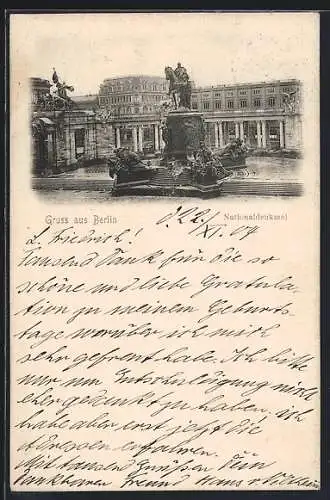 Gruss aus Berlin
Nationaldenkmal
d. 22/XI. 07
L. Friedrich!
Tausend Dank für die so
schöne und liebe Gratula-
tion zu meinem Geburts-
tage worüber ich mich
sehr gefreut habe. Ich bitte
nur um Entschuldigung nicht
eher gedankt zu haben, ich
habe aber erst jetzt die
Adressen erfahren.
Mit tausend Grüßen Dein
dankbarer Freund Hans